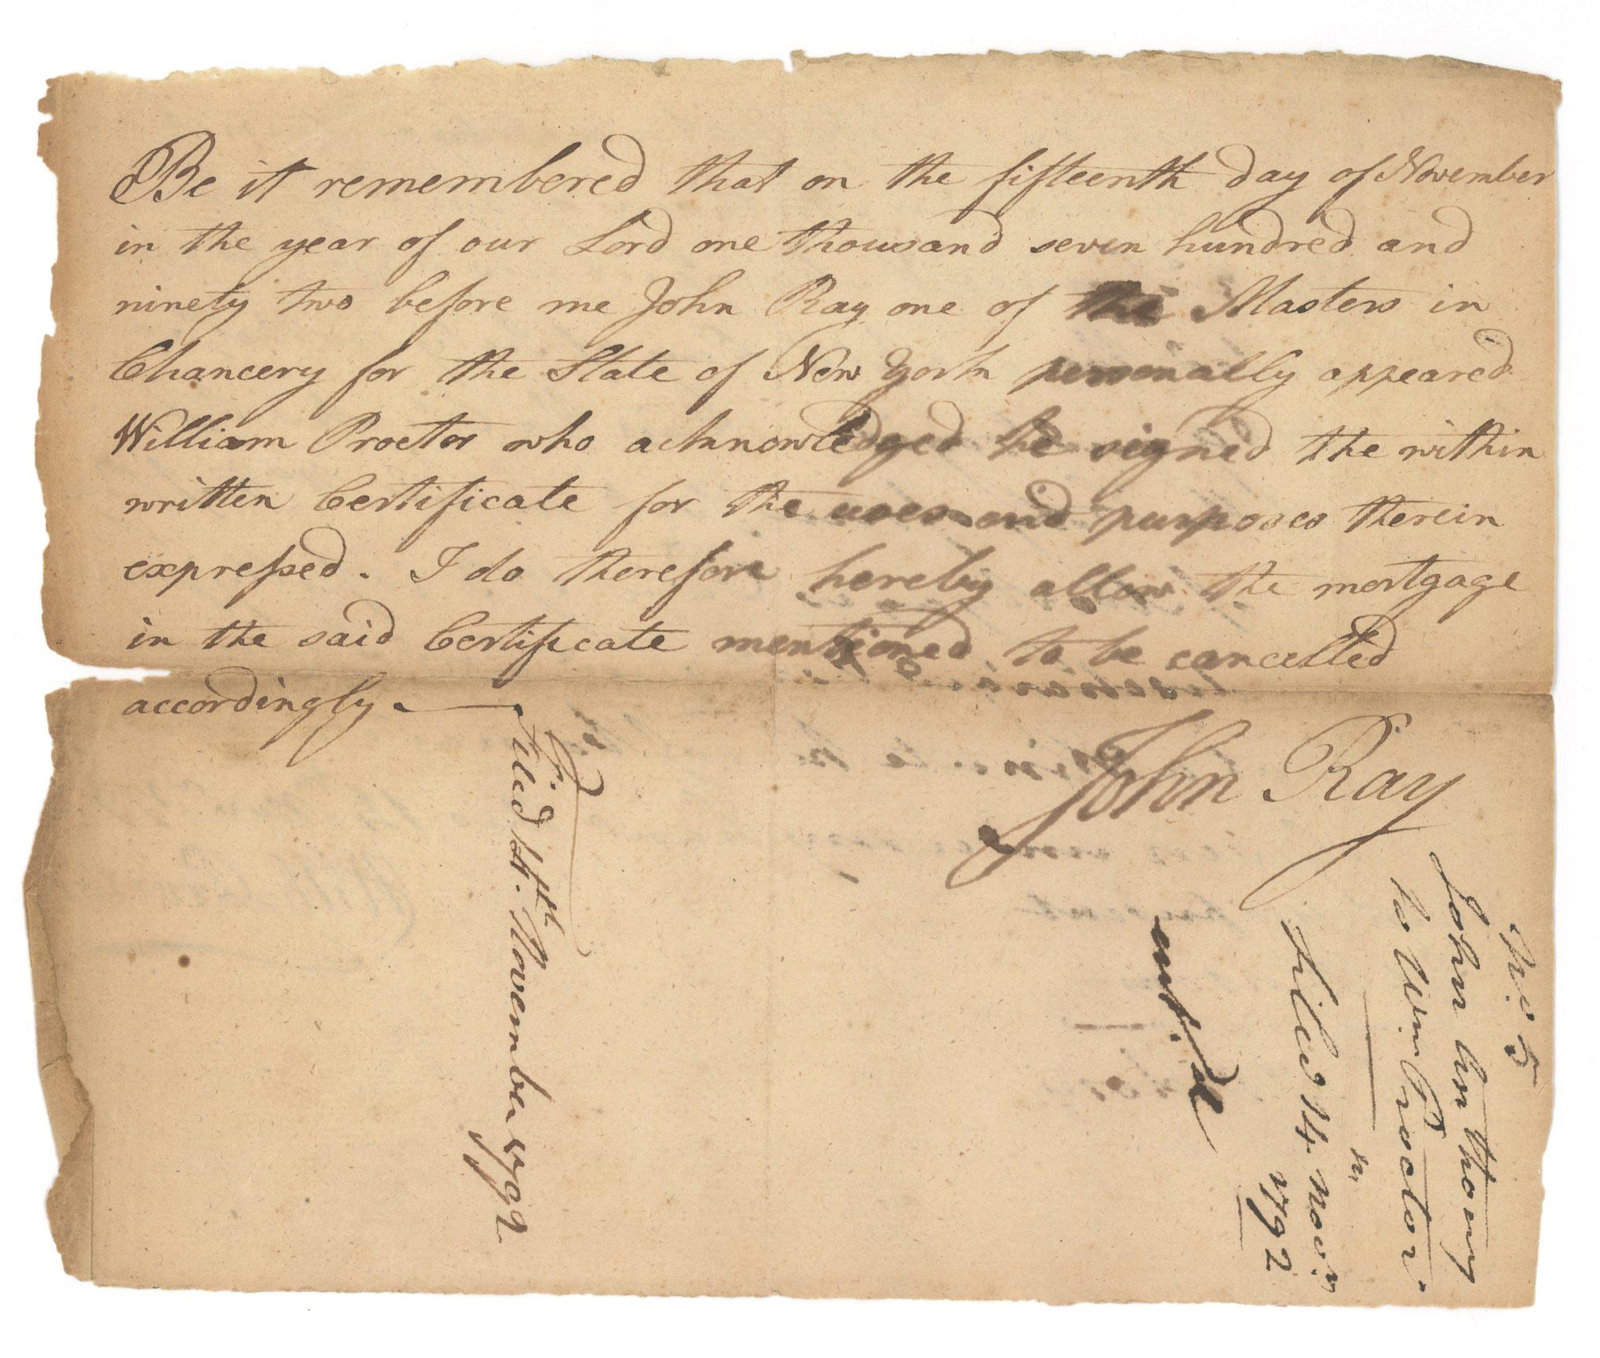 Be it remembered that on the fifteenth day of November
in the year of our Lord one thousand seven hundred and
ninety two before me John Ray one of the Masters in
Chancery for the State of New York personally appeared
William Proctor who acknowledged he signed the within
written Certificate for the uses and purposes therein
expressed. I do therefore hereby allow the mortgage
in the said Certificate mentioned to be cancelled
accordingly.
John Ray
Filed 14th. November 1792
No 5
John Anthony
to Wm Proctor.
Filed 14. Nov.r
1792
ent.d